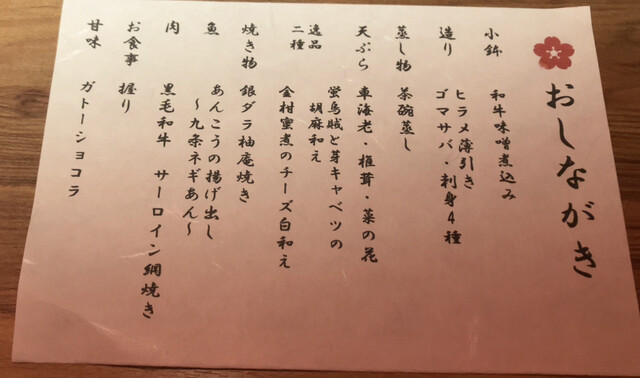 おしながき
小鉢 和牛味噌煮込み
造り ヒラメ薄引き
ゴマサバ・刺身4種
蒸し物 茶碗蒸し
天ぷら 車海老・椎茸・菜の花
逸品二種 蛍烏賊と芽キャベツの
胡麻和え
金柑蜜煮のチーズ白和え
焼き物 銀ダラ柚庵焼き
魚 あんこうの揚げ出し
～九条ネギあん～
肉 黒毛和牛 サーロイン網焼き
お食事 握り
甘味 ガトーショコラ